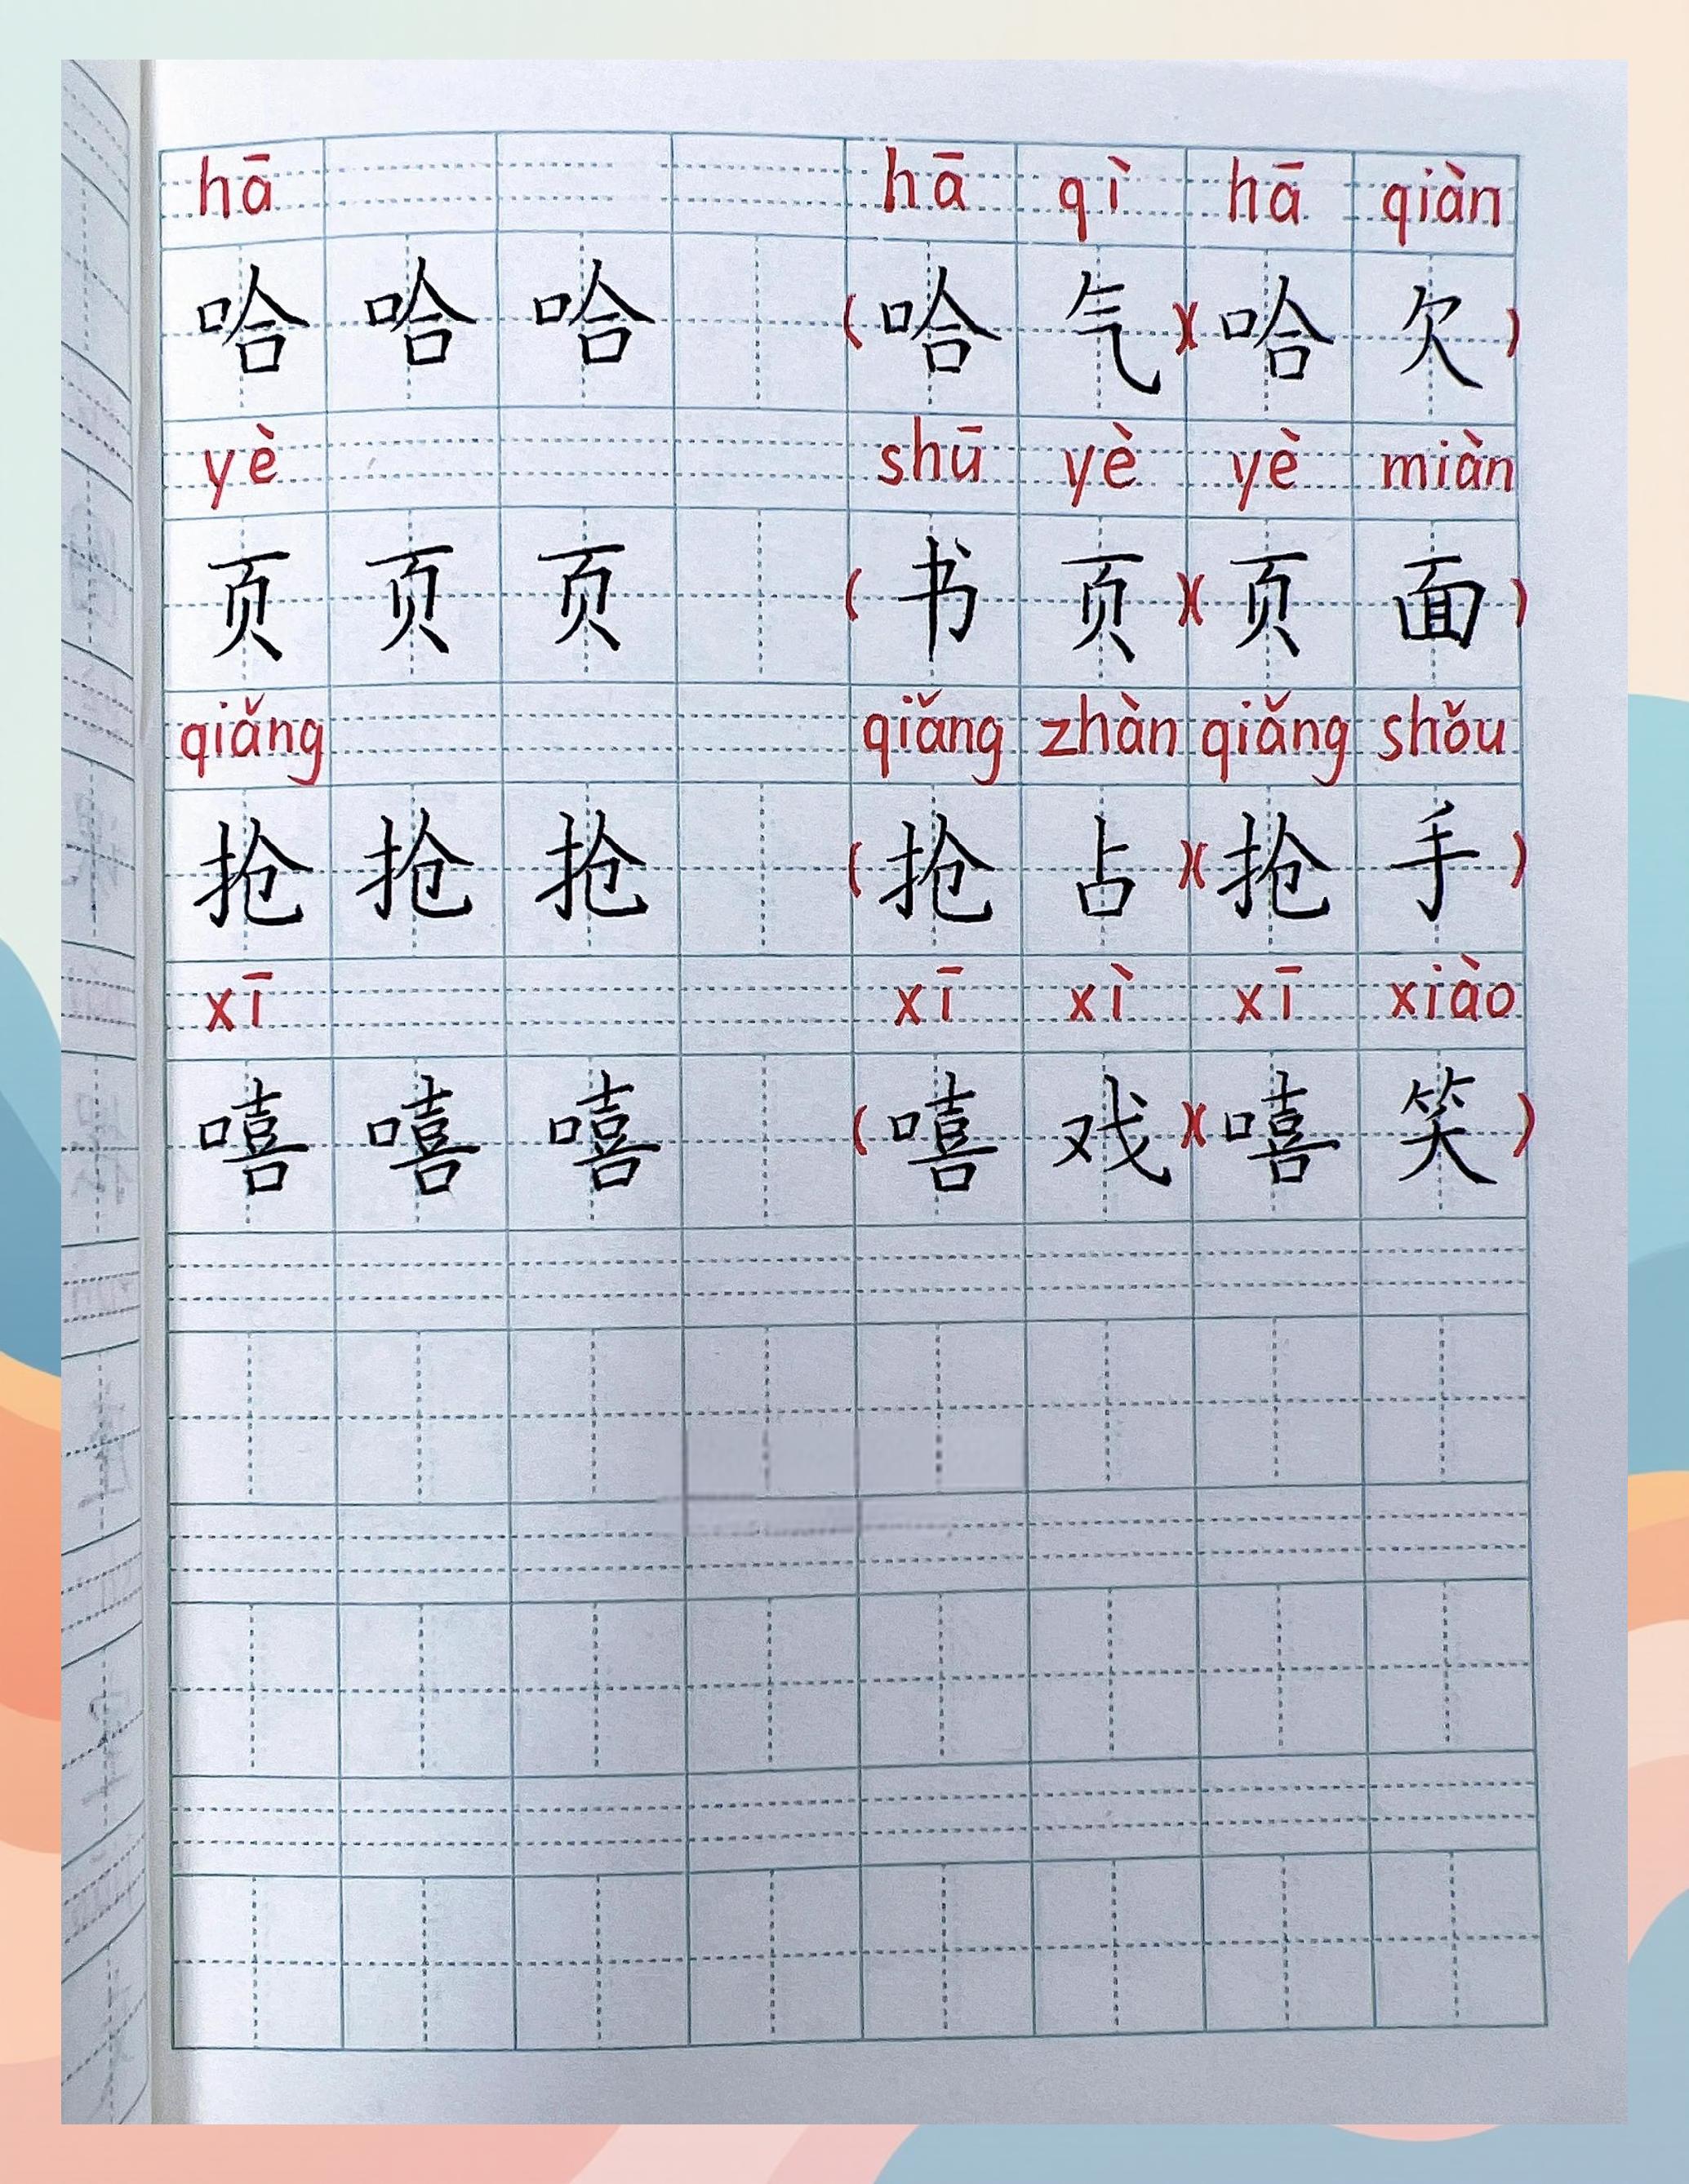 hā hā qì hā qiàn
哈 哈 哈 (哈 气)(哈 欠)
yè shū yè yè miàn
页 页 页 (书 页)(页 面)
qiǎng qiǎng zhàn qiǎng shǒu
抢 抢 抢 (抢 占)(抢 手)
xī xī xì xī xiào
嘻 嘻 嘻 (嘻 戏)(嘻 笑)